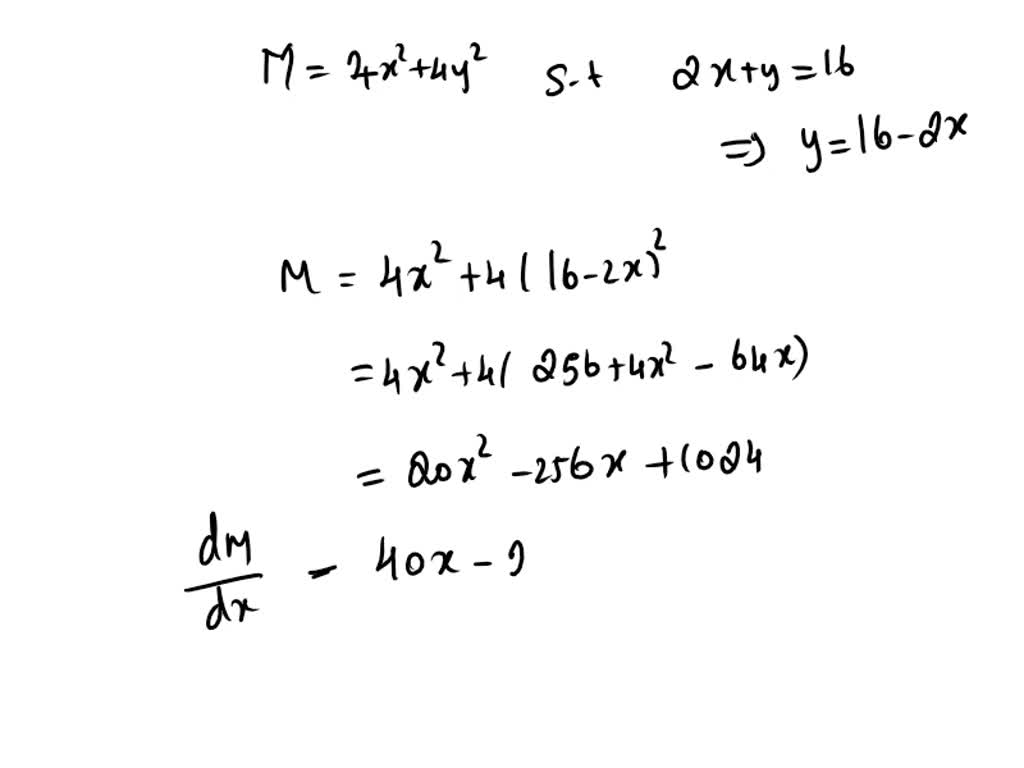 M = 4x²+4y² S.t 2x+y=16
⇒ y=16-2x
M = 4x²+4(16-2x)²
=4x²+4(256+4x²-64x)
= 20x²-256x+1024
dM/dx - 40x-2